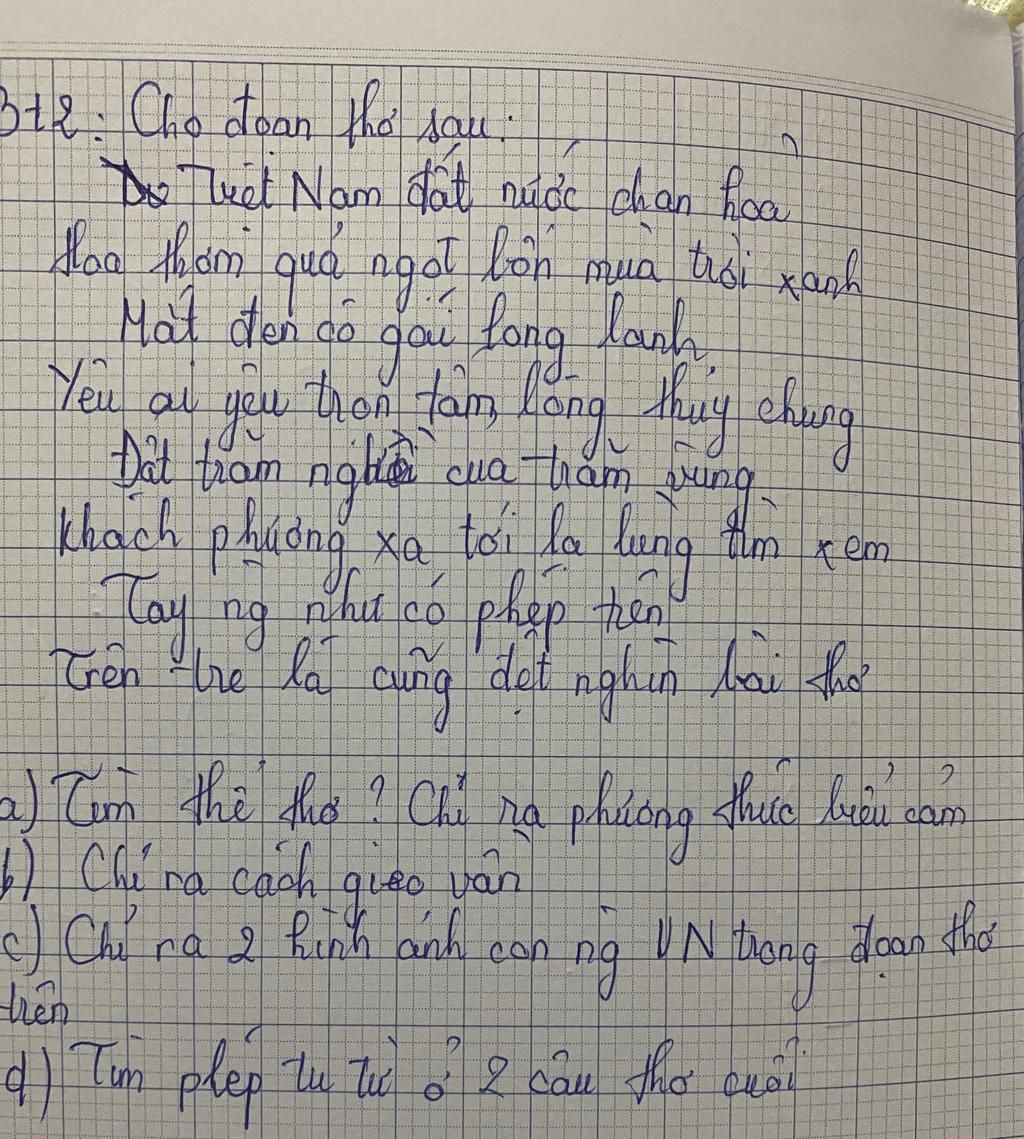 Bt2: Cho đoạn thơ sau:
Việt Nam đất nước chan hoà
Hoa thơm quả ngọt bốn mùa trời xanh
Mắt đen cô gái long lanh
Yêu ai yêu trọn tấm lòng thủy chung
Đất trăm nghề của trăm vùng
Khách phương xa tới lạ lùng tìm xem
Tay ng như có phép tiên
Trên tre lá cũng dệt nghìn bài thơ
a) Tìm thể thơ? Chỉ ra phương thức biểu cảm
b) Chỉ ra cách gieo vần
c) Chỉ ra 2 hình ảnh con ng VN trong đoạn thơ
trên
d) Tìm phép tu từ ở 2 câu thơ cuối